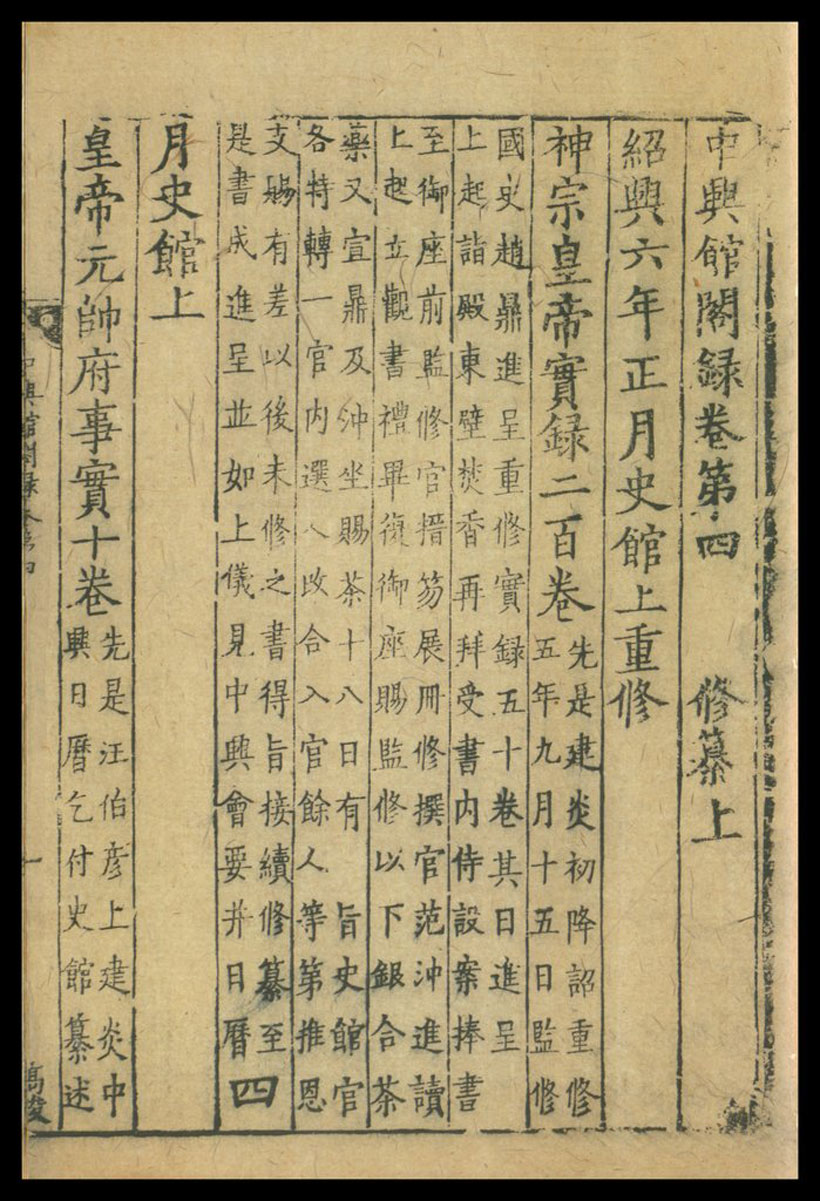 中興館閣録卷第四　修纂上
紹興六年正月史館上重修
神宗皇帝實録二百卷
先是建炎初降詔重修
五年九月十五日監修
國史趙鼎進呈重修實録五十卷其日進呈
上起詣殿東壁焚香再拜受書内侍設案捧書
至御座前監修官搢笏展冊修撰官范沖進讀
上起立觀書禮畢復御座賜監修以下銀合茶
藥又宣鼎及沖坐賜茶十八日有　旨史館官
各特轉一官内選人改合入官餘人等第推恩
支賜有差以後未修之書得旨接續修纂至
是書成進呈並如上儀見中興會要并日曆四
月史館上
皇帝元帥府事實十卷
先是汪伯彦上建炎中
興日曆乞付史館纂述
中興館閣録卷第四
一